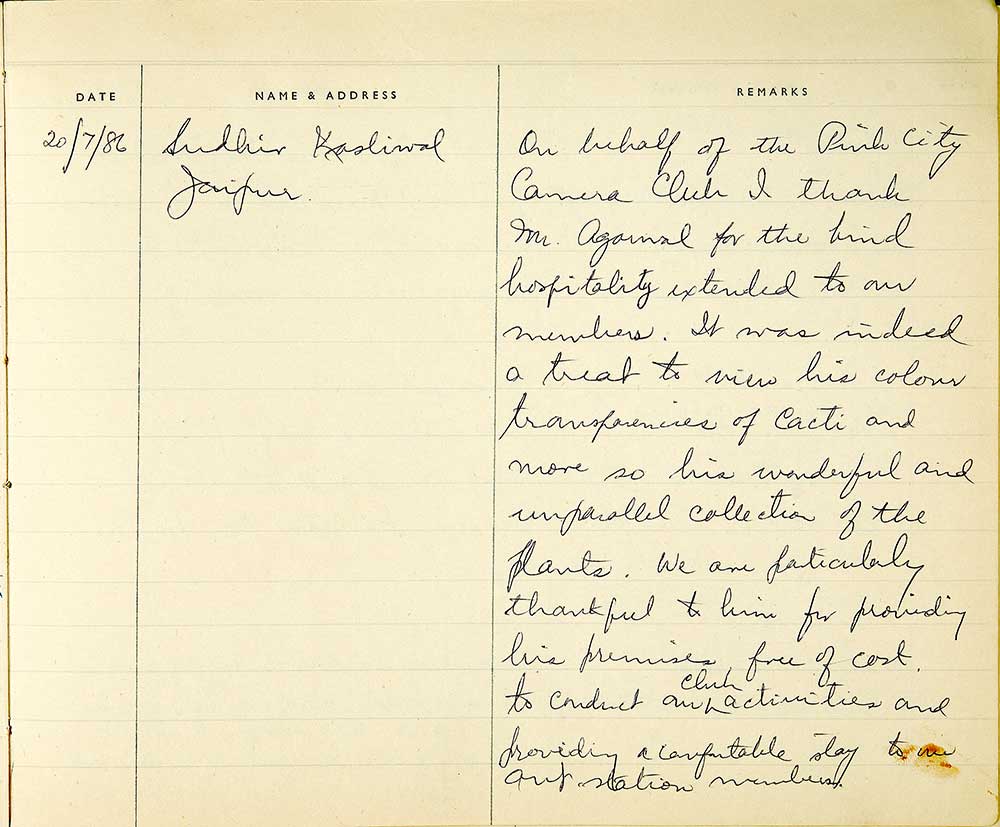 DATE NAME & ADDRESS REMARKS
20/7/86 Sudhir Kasliwal On behalf of the Pink City
Jaipur. Camera Club I thank
Mr. Agarwal for the kind
hospitality extended to our
members. It was indeed
a treat to view his colour
transparencies of Cacti and
more so his wonderful and
unparallel collection of the
plants. We are particularly
thankful to him for providing
his premises free of cost.
to conduct our club activities and
providing a comfortable stay to our
out station members.